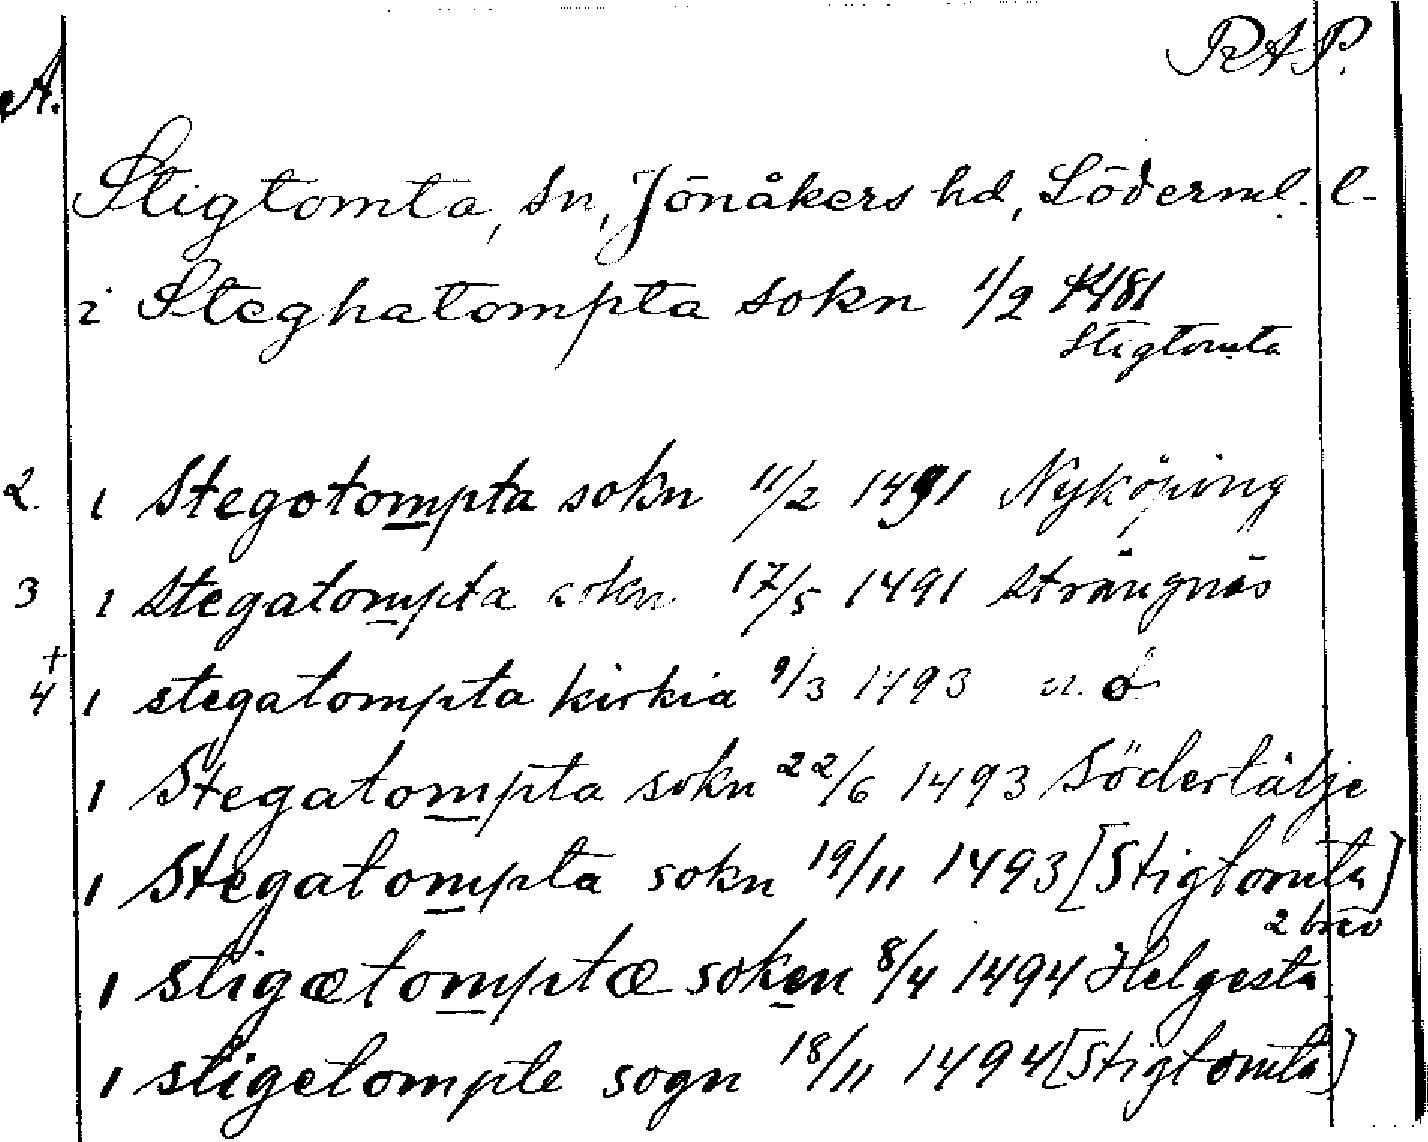 RAP.
A.
Stigtomta, sn, Jönåkers hd, Söderml. l-
i Steghatompta sokn 1/2 1481
Stigtomta
2. i Stegotompta sokn 11/2 1491 Nyköping
3 i Stegatompta sokn 17/5 1491 Strängnäs
+
4 i stegatompta kirkia 9/3 1493 u. o
i Stegatompta sokn 22/6 1493 Södertälje
i Stegatompta sokn 19/11 1493 [Stigtomta]
2 brev
i stigætomptæ soken 8/4 1494 Helgesta
i stigetompte sogn 18/11 1494 [Stigtomta]